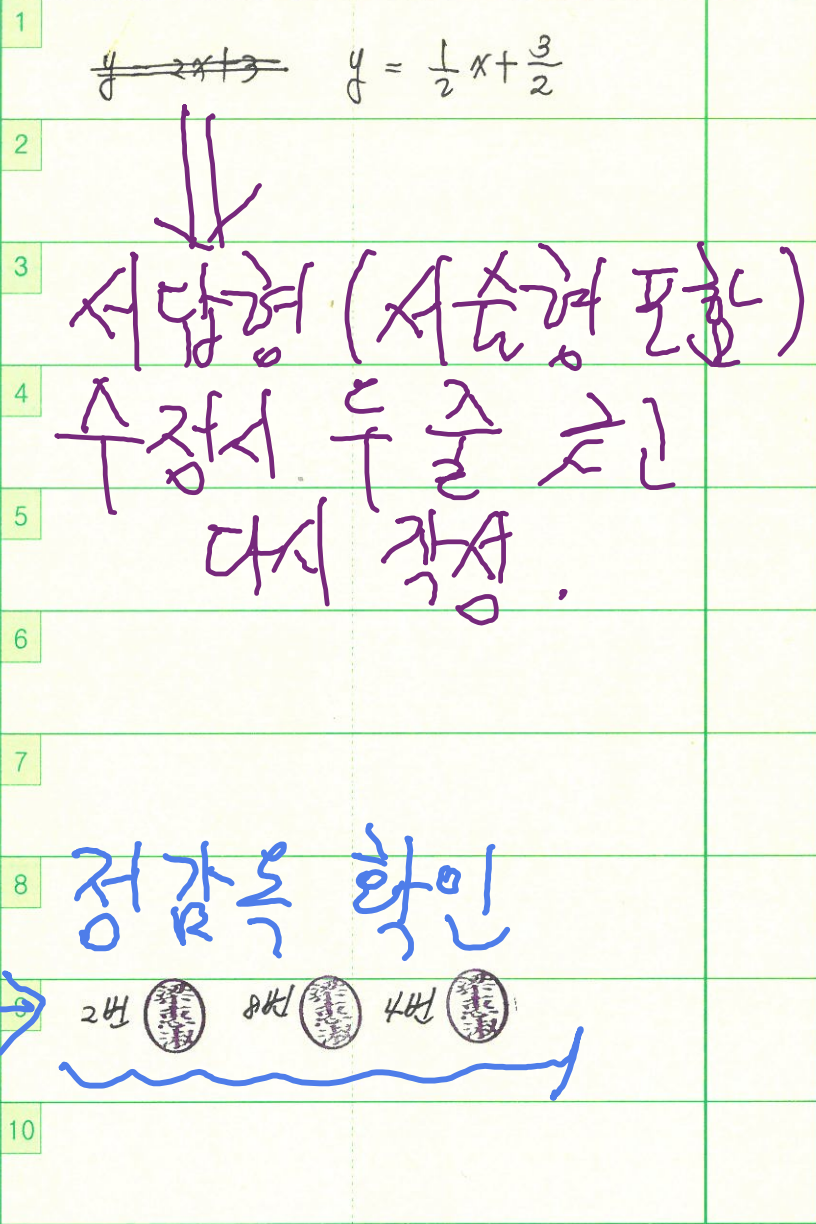 1
~~y = 2x+3~~ y = 1/2 x + 3/2
2
3
서답형 (서술형 포함)
4
수정시 두 줄 긋고
5
다시 작성.
6
7
8
정감독 확인
9
2번 8번 4번
10